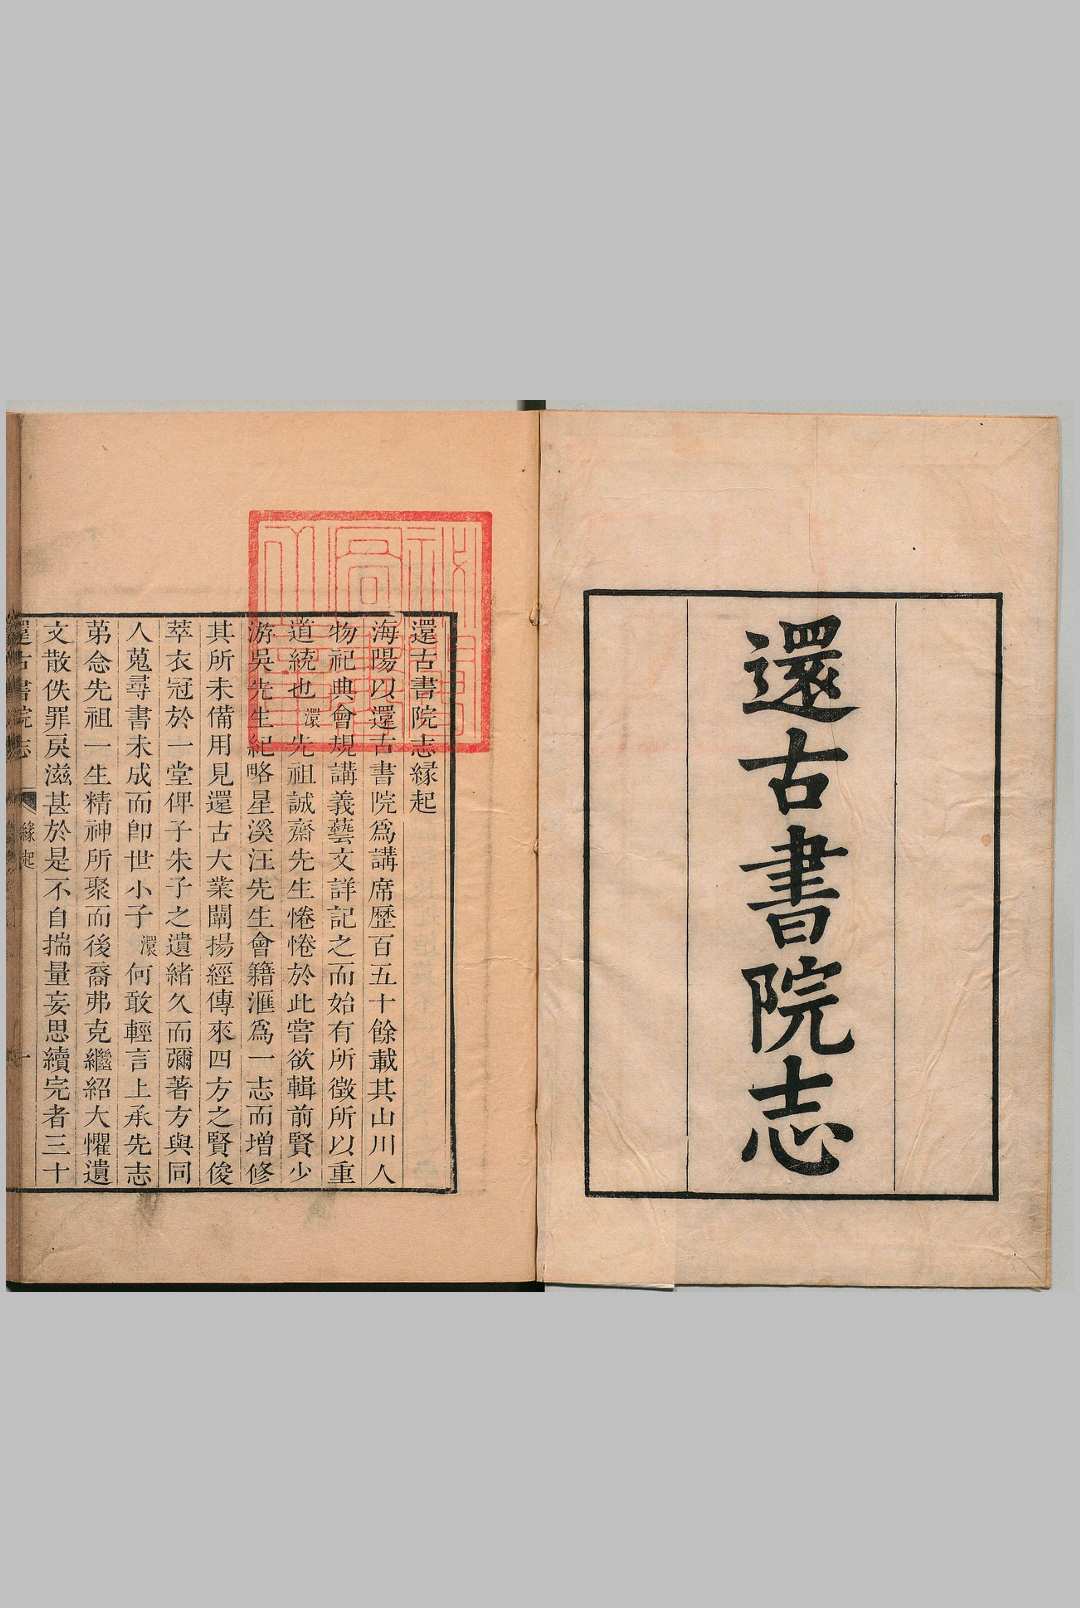 還古書院志
還古書院志緣起
海陽以還古書院爲講席歷百五十餘載其山川人
物祀典會規講義藝文詳記之而始有所徵所以重
道統也還先祖誠齋先生惓惓於此嘗欲輯前賢少
游吳先生紀略星溪汪先生會籍滙爲一志而增修
其所未備用見還古大業闡揚經傳來四方之賢俊
萃衣冠於一堂俾子朱子之遺緒久而彌著方與同
人蒐尋書未成而卽世小子還何敢輕言上承先志
第念先祖一生精神所聚而後裔弗克繼紹大懼遺
文散佚罪戾滋甚於是不自揣量妄思續完者三十
還古書院志 緣起 一